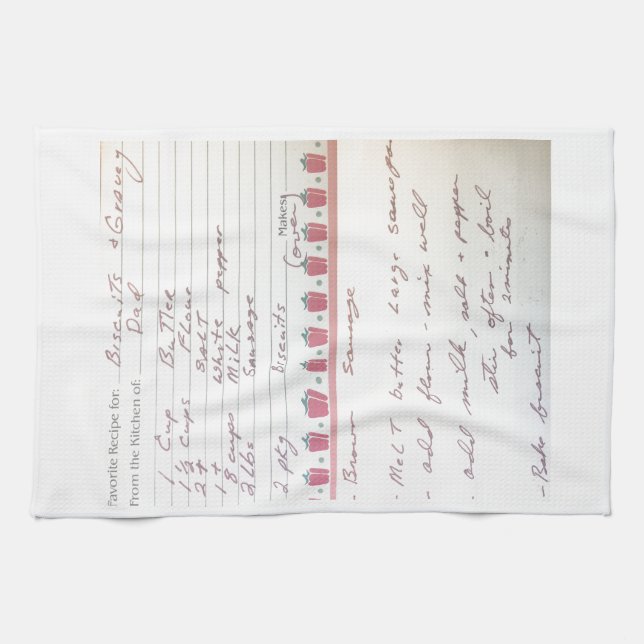 Favorite Recipe for: Biscuits & Gravey
From the Kitchen of: Dad
1 Cup Butter
1 1/2 Cups Flour
2 t Salt
1 t white pepper
8 cups Milk
2 lbs Sausage
2 pkg Biscuits
Makes:
(over)
- Brown Sausage
- Melt butter Large
- add flour - mix well
- add milk, salt + pepper
stir often - boil
for 2 minutes
- Bake biscuit